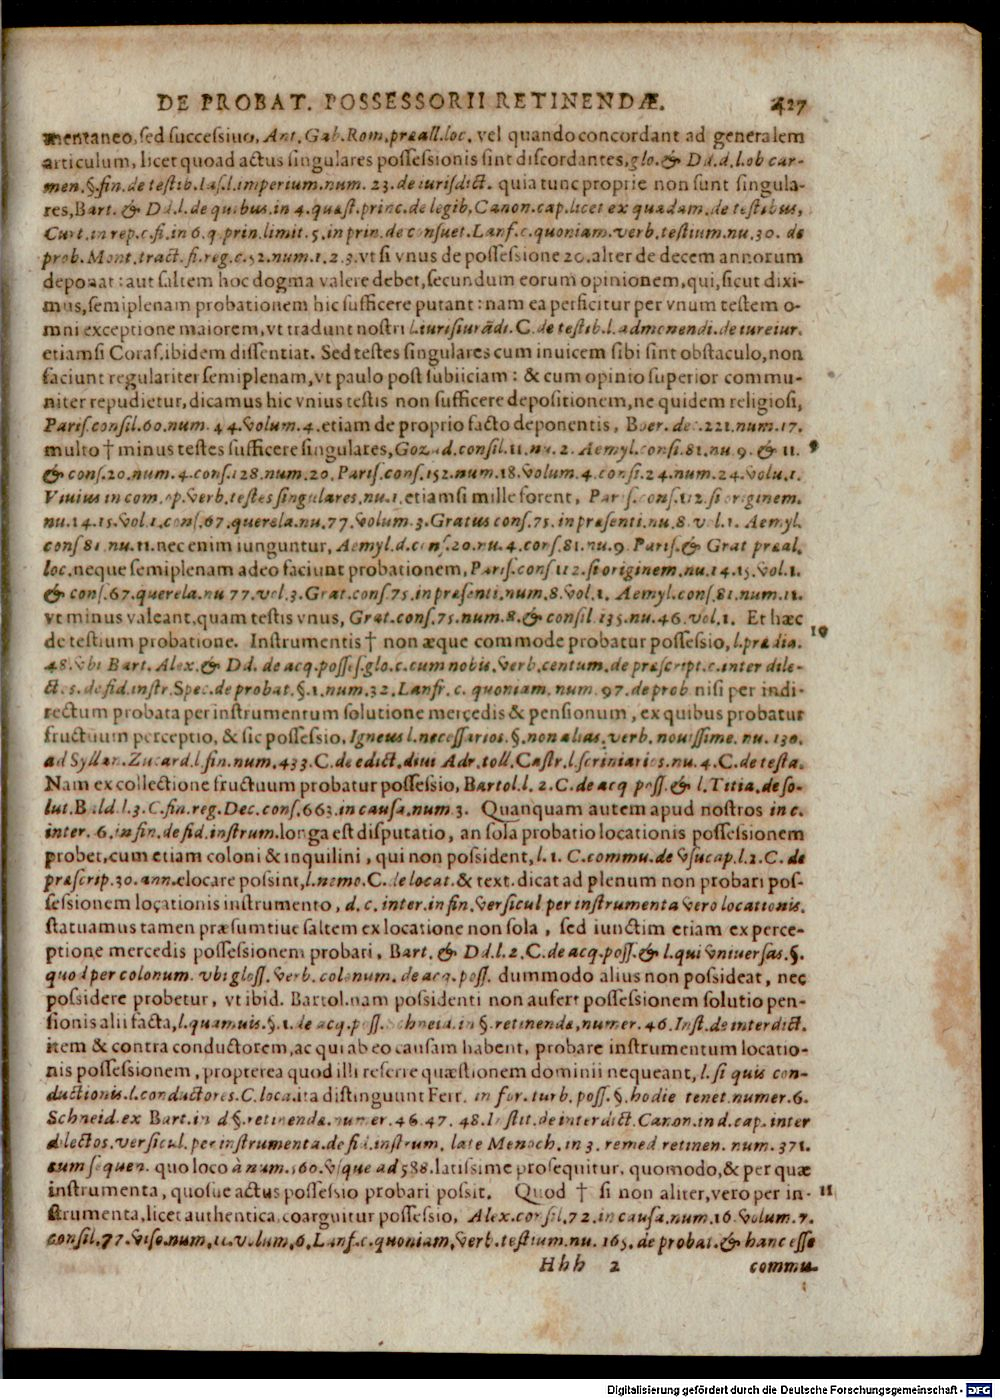 DE PROBAT. POSSESSORII RETINENDÆ. 427
mentaneo, sed successiuo, Ant. Gab. Rom. præall. loc. vel quando concordant ad generalem
articulum, licet quoad actus singulares possessionis sint discordantes, glo. & Dd. d. l. ob car-
men. §. fin. de testib. Ias. l. imperium. num. 23. de iurisdict. quia tunc proprie non sunt singula-
res, Bart. & Dd. l. de quibus. in 4. quæst. princ. de legib. Canon. cap. licet ex quadam. de testibus,
Curt. in rep. c. fi. in 6. q. prin. limit. 5. in prin. de consuet. Lanf. c. quoniam. verb. testium. nu. 30. de
prob. Mont. tract. fi. reg. c. 52. num. 1. 2. 3. vt si vnus de possessione 20. alter de decem annorum
deponat: aut saltem hoc dogma valere debet, secundum eorum opinionem, qui, sicut dixi-
mus, semiplenam probationem hic sufficere putant: nam ea perficitur per vnum testem o-
mni exceptione maiorem, vt tradunt nostri l. iurisiurādi. C. de testib. l. admonendi. de iureiur.
etiamsi Coras. ibidem dissentiat. Sed testes singulares cum inuicem sibi sint obstaculo, non
faciunt regulariter semiplenam, vt paulo post subiiciam: & cum opinio superior commu-
niter repudietur, dicamus hic vnius testis non sufficere depositionem, ne quidem religiosi,
Paris. consil. 60. num. 44. Volum. 4. etiam de proprio facto deponentis, Boer. dec. 221. num. 17.
multo † minus testes sufficere singulares, Goz d. consil. 11. nu. 2. Aemyl. consi. 81. nu. 9. & 11. 9
& cons. 20. num. 4. cons. 128. num. 20. Paris. cons. 152. num. 18. Volum. 4. consi. 24. num. 24. Volu. 1.
Viuius in com. op. Verb. testes singulares. nu. 1. etiamsi mille forent, Paris. cons. 112. si originem.
nu. 14. 15. Vol. 1. cons. 67. querela. nu. 77. Volum. 3. Gratus cons. 75. in præsenti. nu. 8. vol. 1. Aemyl.
cons 81. nu. 11. nec enim iunguntur, Aemyl. d. cons. 20. nu. 4. cons. 81. nu. 9. Paris. & Grat præal.
loc. neque semiplenam adeo faciunt probationem, Paris. cons 112. si originem. nu. 14. 15. Vol. 1.
& cons. 67. querela. nu 77. vol. 3. Grat. cons. 75. in præsenti. num. 8. Vol. 1. Aemyl. cons. 81. num. 11.
vt minus valeant, quam testis vnus, Grat. cons. 75. num. 8. & consil 135. nu. 46. vol. 1. Et hæc
de testium probatione. Instrumentis † non æque commode probatur possessio, l. prædia. 10
48. Vbi Bart. Alex. & Dd. de acq. posses. glo. c. cum nobis. Verb. centum. de præscript. c. inter dile-
ctos. de fid. instr. Spec. de probat. §. 1. num. 32. Lanfr. c. quoniam. num. 97. de prob. nisi per indi-
rectum probata per instrumentum solutione mercedis & pensionum, ex quibus probatur
fructuum perceptio, & sic possessio, Igneus l. necessarios. §. non alias. verb. nouissime. nu. 130.
ad Syllan. Zucard. l. fin. num. 433. C. de edict. diui Adr. toll. Castr. l. scriniarios. nu. 4. C. de testa.
Nam ex collectione fructuum probatur possessio, Bartol. l. 2. C. de acq poss. & l. Titia. de so-
lut. Bald. l. 3. C. fin. reg. Dec. cons. 663. in causa. num. 3. Quanquam autem apud nostros in c.
inter. 6. in fin. de fid. instrum. longa est disputatio, an sola probatio locationis possessionem
probet, cum etiam coloni & inquilini, qui non possident, l. 1. C. commu. de vsucap. l. 2. C. de
præscrip. 30. ann. elocare possint, l. nemo. C. de locat. & text. dicat ad plenum non probari pos-
sessionem locationis instrumento, d. c. inter. in fin. versicul per instrumenta vero locationis.
statuamus tamen præsumtiue saltem ex locatione non sola, sed iunctim etiam ex perce-
ptione mercedis possessionem probari, Bart. & Dd. l. 2. C. de acq. poss. & l. qui vniuersas. §.
quod per colonum. vbi gloss. Verb. colonum. de acq. poss. dummodo alius non possideat, nec
possidere probetur, vt ibid. Bartol. nam possidenti non aufert possessionem solutio pen-
sionis alii facta, l. quamuis. §. 1. de acq. poss. Schneid. in §. retinendæ, numer. 46. Inst. de interdict.
item & contra conductorem, ac qui ab eo causam habent, probare instrumentum locatio-
nis possessionem, propterea quod illi referre quæstionem dominii nequeant, l. si quis con-
ductionis. l. conductores. C. loca. ita distinguunt Ferr. in for. turb. poss. §. hodie tenet. numer. 6.
Schneid. ex Bart. in d §. retinendæ. numer. 46. 47. 48. Instit. de interdict. Canon. in d. cap. inter
dilectos. versicul. per instrumenta. de fid. instrum. late Menoch. in 3. remed. retinen. num. 371.
cum sequen. quo loco à num. 360. vsque ad 588. latissime prosequitur, quomodo, & per quæ
instrumenta, quosue actus possessio probari possit. Quod † si non aliter, vero per in- 11
strumenta, licet authentica, coarguitur possessio, Alex. consil. 72. in causa. num. 16. Volum. 7.
consil. 77. Viso. num. 11. volum. 6. Lanf. c. quoniam. Verb. testium. nu. 165. de probat. & hanc esse
Hhh 2 commu-
Digitalisierung gefördert durch die Deutsche Forschungsgemeinschaft - DFG